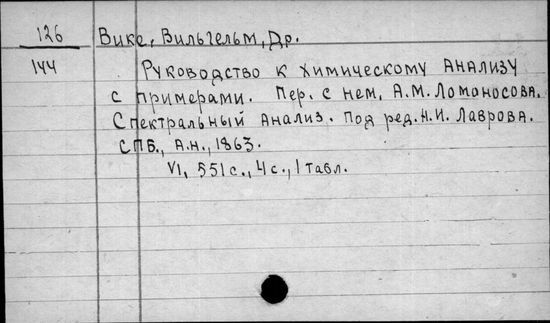 126
144
Вике, Вильгельм, Др.
Руководство к химическому анализу
с примерами. Пер. с нем. А.М. Ломоносова.
Спектральный анализ. Под ред. Н.И. Лаврова.
СПБ., А.н., 1863.
VI, 551 с., 4 с., 1 табл.